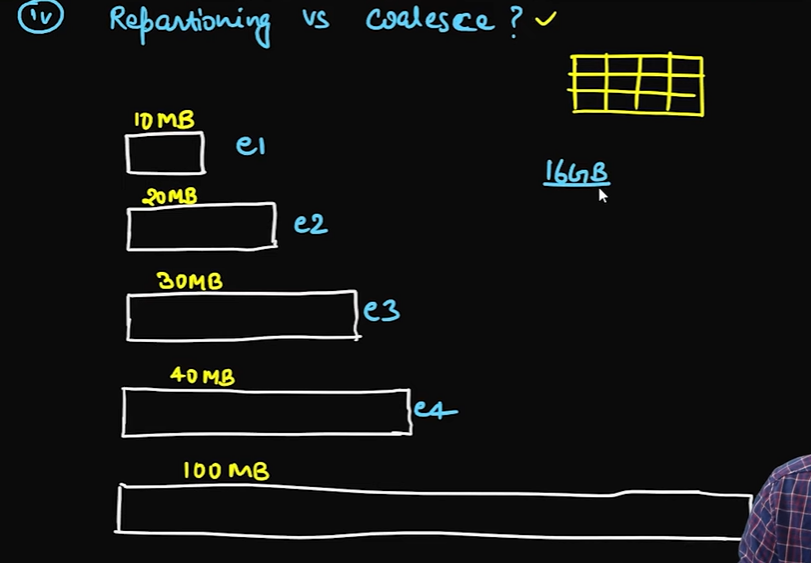 iv Repartioning vs coalesce ?
10MB
e1
16GB
20MB
e2
30MB
e3
40MB
e4
100MB